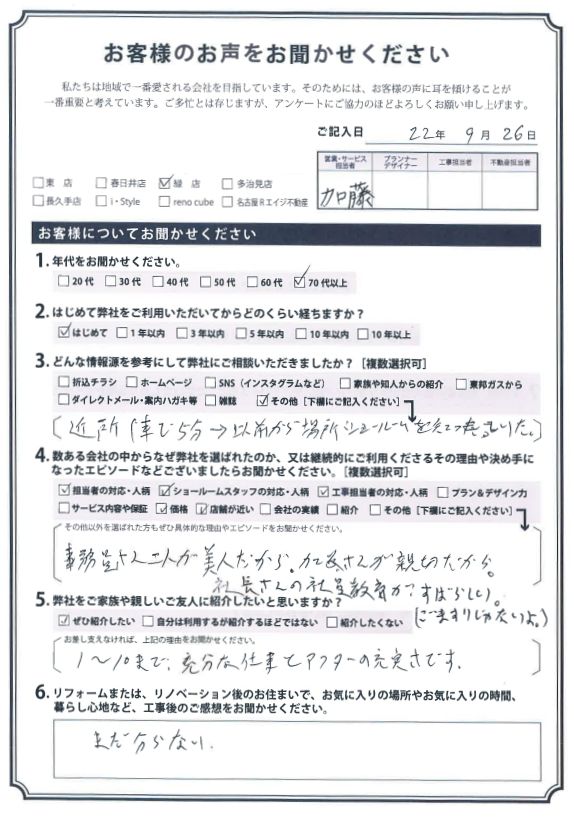 お客様のお声をお聞かせください
私たちは地域で一番愛される会社を目指しています。そのためには、お客様の声に耳を傾けることが
一番重要と考えています。ご多忙とは存じますが、アンケートにご協力のほどよろしくお願い申し上げます。
ご記入日 22年 9月 26日
営業・サービス担当者 プランナーデザイナー 工事担当者 不動産担当者
加藤
□東 店 □春日井店 ☑緑 店 □多治見店
□長久手店 □i・Style □reno cube □名古屋Rエイジ不動産
お客様についてお聞かせください
1. 年代をお聞かせください。
□20代 □30代 □40代 □50代 □60代 ☑70代以上
2. はじめて弊社をご利用いただいてからどのくらい経ちますか？
☑はじめて □1年以内 □3年以内 □5年以内 □10年以内 □10年以上
3. どんな情報源を参考にして弊社にご相談いただきましたか？［複数選択可］
□折込チラシ □ホームページ □SNS（インスタグラムなど） □家族や知人からの紹介 □東邦ガスから
□ダイレクトメール・案内ハガキ等 □雑誌 ☑その他［下欄にご記入ください］
近所（車で5分→以前から場所ショールーム
4. 数ある会社の中からなぜ弊社を選ばれたのか、又は継続的にご利用くださるその理由や決め手に
なったエピソードなどございましたらお聞かせください。［複数選択可］
☑担当者の対応・人柄 ☑ショールームスタッフの対応・人柄 ☑工事担当者の対応・人柄 □プラン＆デザイン力
□サービス内容や保証 ☑価格 ☑店舗が近い □会社の実績 □紹介 □その他［下欄にご記入ください］
その他以外を選ばれた方もぜひ具体的な理由やエピソードをお聞かせください。
事務員さん二人が美人だから。加藤さんが親切だから。
社長さんの社員教育が、すばらしい。
（ごますりじゃないよ。）
5. 弊社をご家族や親しいご友人に紹介したいと思いますか？
☑ぜひ紹介したい □自分は利用するが紹介するほどではない □紹介したくない
お差し支えなければ、上記の理由をお聞かせください。
1～10まで、充分な仕事とアフターの充実さです.
6. リフォームまたは、リノベーション後のお住まいで、お気に入りの場所やお気に入りの時間、
暮らし心地など、工事後のご感想をお聞かせください。
まだ分らない.